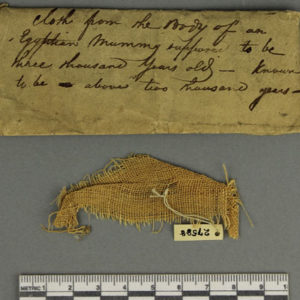 Cloth from the Body of an
Egyptian Mummy suppose to be
three thousand years old - Known
to be - above two thousand years -
METRIC 1 2 3 4 5 6 7 8 9 10